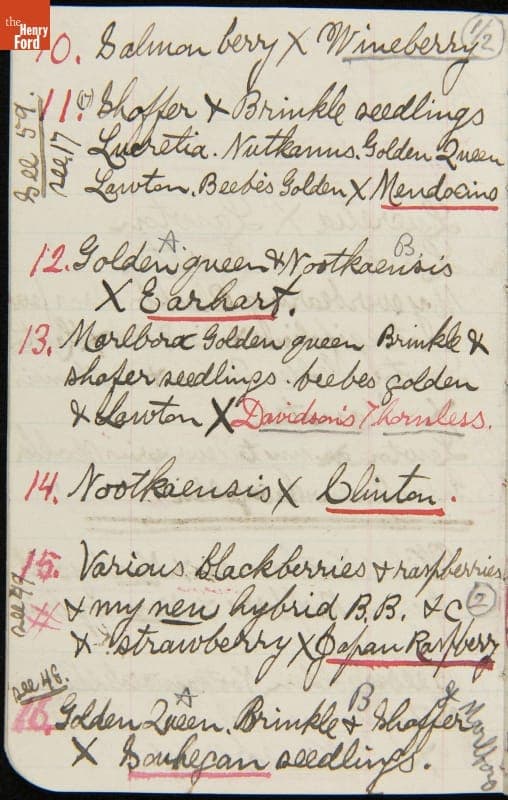 the Henry Ford
10. Salmon berry X Wineberry 1/2
11. (17) Shoffer X Brinkle seedlings
Lucretia. Nutkanus. Golden Queen
Lawton. Beebe's Golden X Mendocino
See 59.
see 17
A B
12. Golden queen & Nootkaensis
X Earhart.
13. Marlboro Golden queen Brinkle &
shafer seedlings. beebes golden
& Lawton X Davidson's Thornless.
14. Nootkaensis X Clinton.
15. Various blackberries & raspberries
see 49
# & my new hybrid B.B. &c 2
& strawberry X Japan Raspberry
see 46.
A B
16. Golden Queen. Brinkle & Shaffer
X Souhegan seedlings.